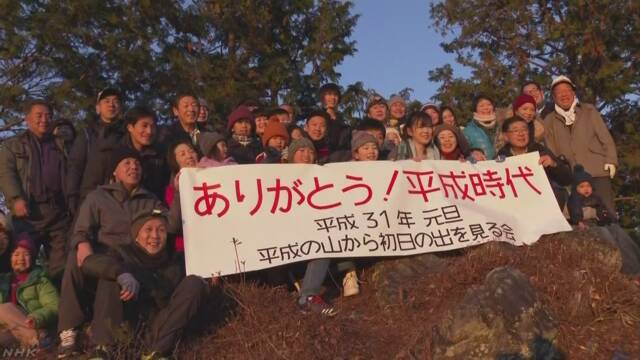 ありがとう！平成時代
平成31年 元旦
平成の山から初日の出を見る会
NHK